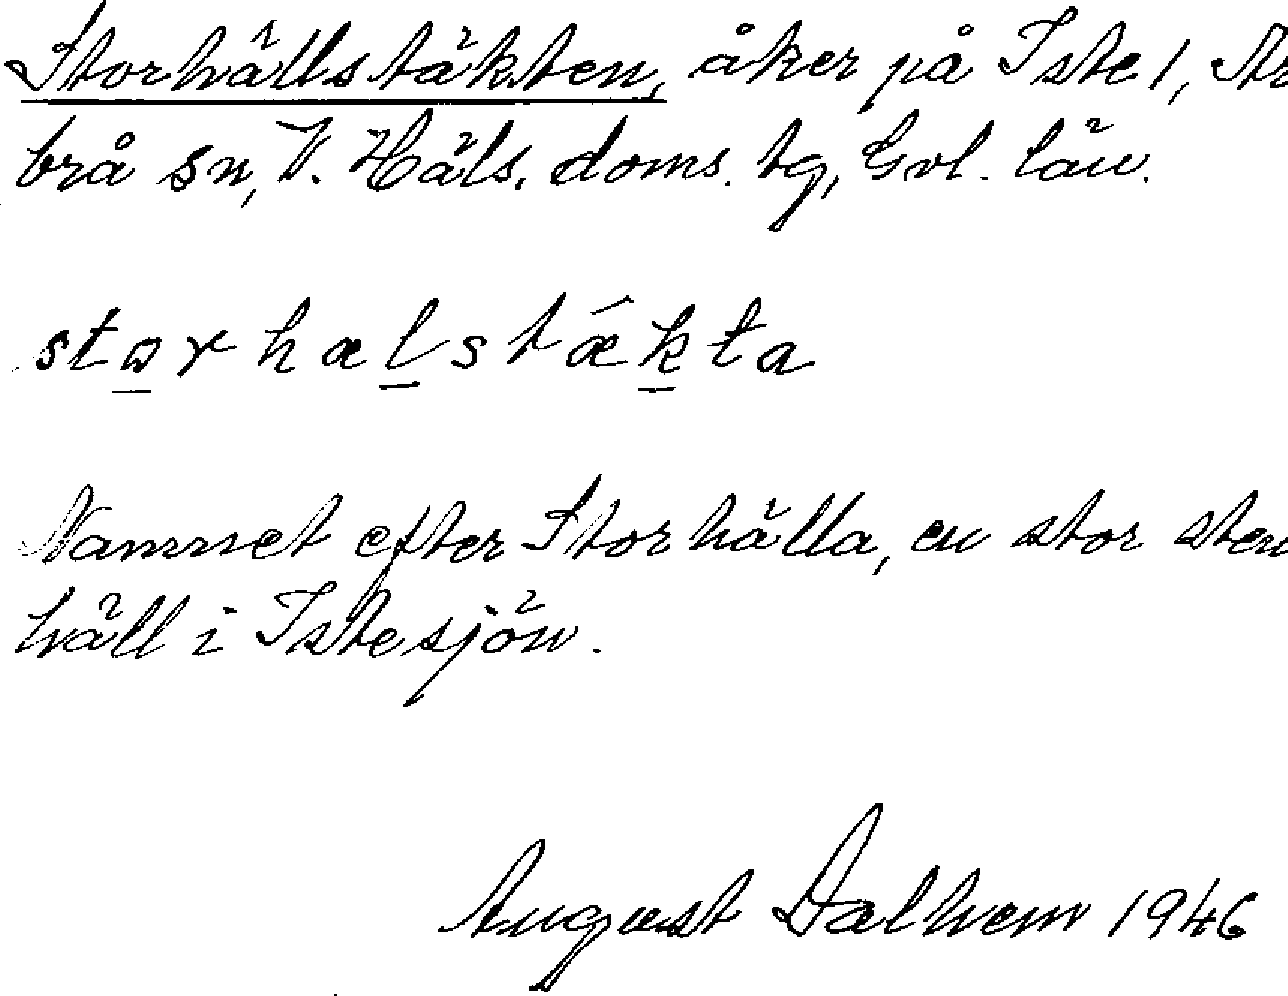 Storhällstäkten, åker på Iste 1, Ar
brå sn, V. Häls. doms. tg, Gvl. län.
storhælstǽkta
Namnet efter Storhälla, en stor sten
häll i Istesjön.
August Dalhem 1946